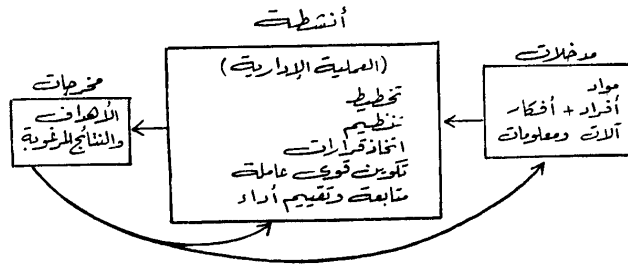 أنشطة
مدخلات
مواد
أفراد + أفكار
آلات ومعلومات
(العملية الإدارية)
تخطيط
تنظيم
اتخاذ قرارات
تكوين قوى عاملة
متابعة وتقييم أداء
مخرجات
الأهداف
والنتائج المرغوبة